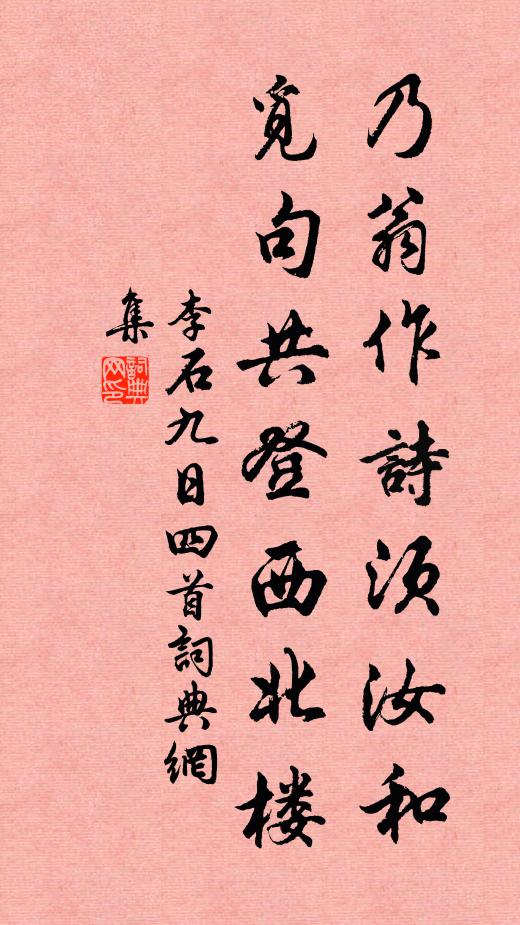 乃翁作詩須汝和
覓句共登西北楼
李石九日四首詞典網
集
詞典網印